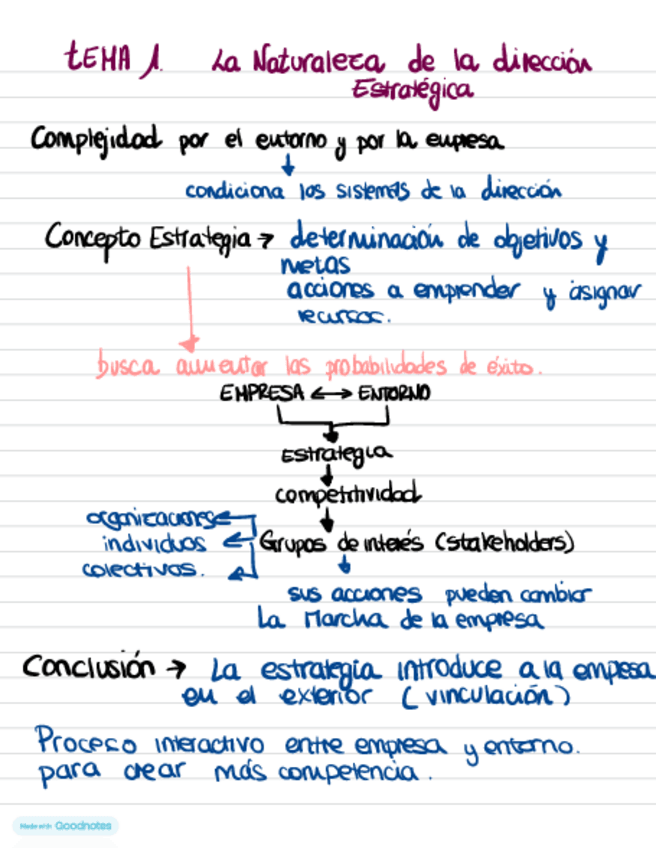 TEMA 1. La Naturaleza de la dirección
Estratégica
Complejidad por el entorno y por la empresa
↓
condiciona los sistemas de la dirección
Concepto Estrategia → determinación de objetivos y
metas
acciones a emprender y asignar
recursos.
busca aumentar las probabilidades de éxito.
EMPRESA ↔ ENTORNO
Estrategia
competitividad
organizaciones
individuos
colectivos.
Grupos de interés (stakeholders)
sus acciones pueden cambiar
La Marcha de la empresa
Conclusión → La estrategia introduce a la empesa
en el exterior (vinculación)
Proceso interactivo entre empresa y entorno.
para crear más competencia.
Made with Goodnotes